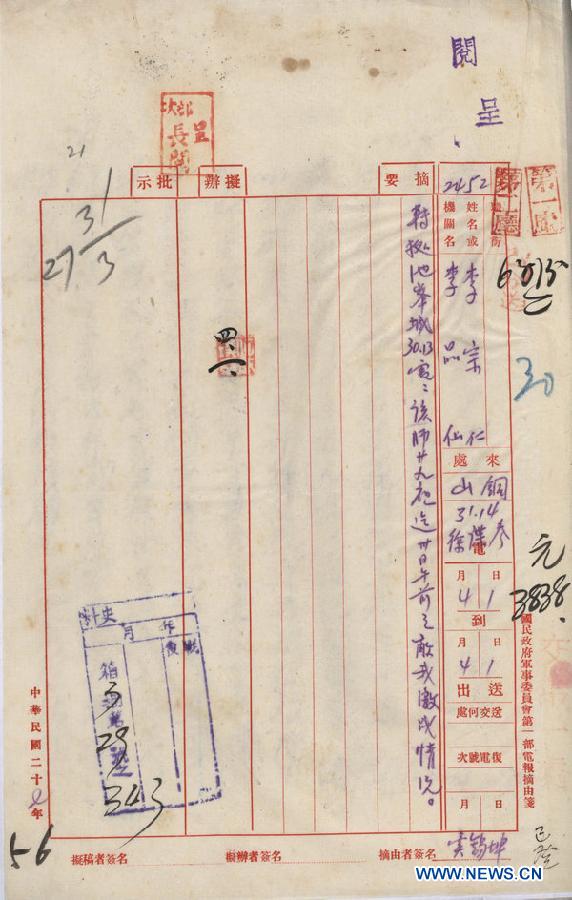 閱
呈
呈
次
部
長
閱
第一廳
第一廳
2452
姓名或
機關名
李宗仁
李品仙
來處
銅山
31.14
電
月 日
4 1
到
月 日
4 1
送出
送交何處
復電號次
月 日
摘要
轉報池峯城30.13電：該師廿九夜迄卅日午前之敵我激戰情況。
擬辦
批示
21
31/3
27
四一
30
元
3838.
國民政府軍事委員會第一部電報摘由箋
史料
箱
3
29
343
中華民國二十 年
56
擬稿者簽名
擬辦者簽名
摘由者簽名
WWW.NEWS.CN